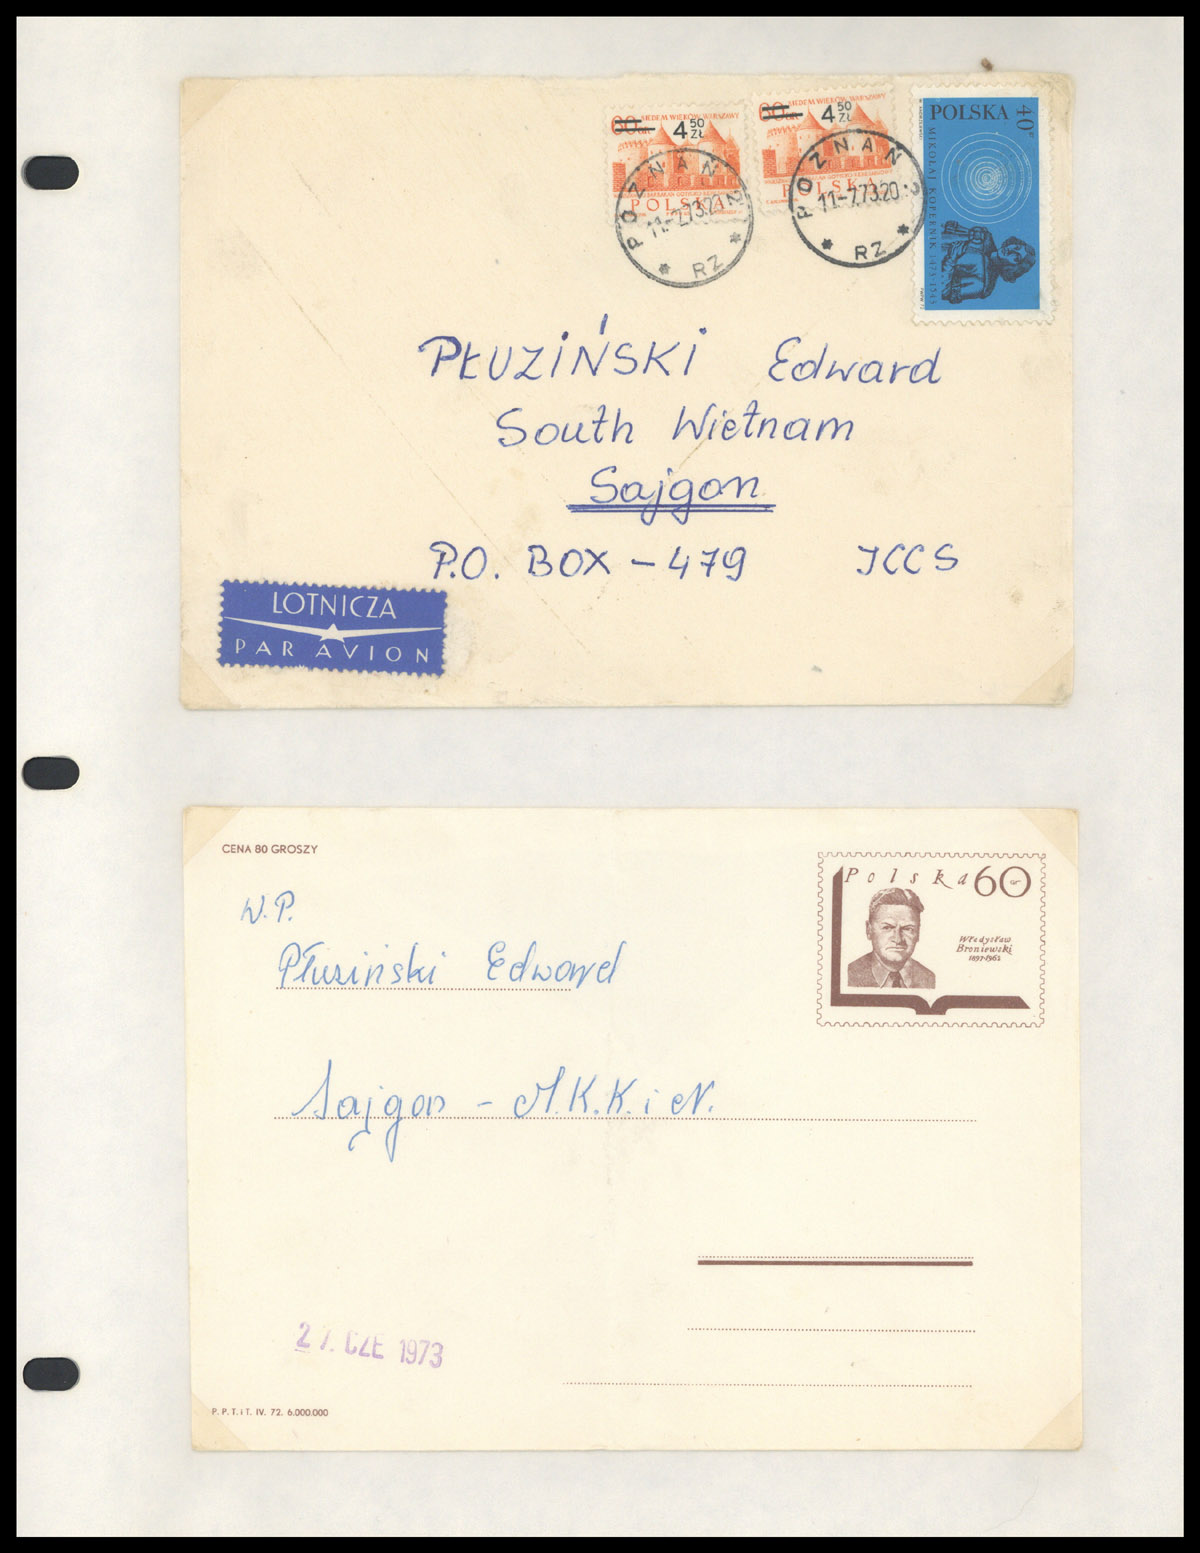 60 gr SIEDEM WIEKÓW WARSZAWY
4 50 ZŁ
POLSKA
60 gr SIEDEM WIEKÓW WARSZAWY
4 50 ZŁ
POLSKA
POZNAŃ 2
11.-7.73.20
* RZ *
POZNAŃ 2
11.-7.73.20
* RZ *
POLSKA 40 gr
MIKOŁAJ KOPERNIK 1473-1543
PŁUZIŃSKI Edward
South Wietnam
Sajgon
P.O. BOX - 479 JCCS
LOTNICZA
PAR AVION
CENA 80 GROSZY
Polska 60 gr
Władysław
Broniewski
1897-1962
W.P.
Płuziński Edward
Sajgon - M.K.K. i N.
27. CZE 1973
P.P.T.iT. IV. 72. 6.000.000